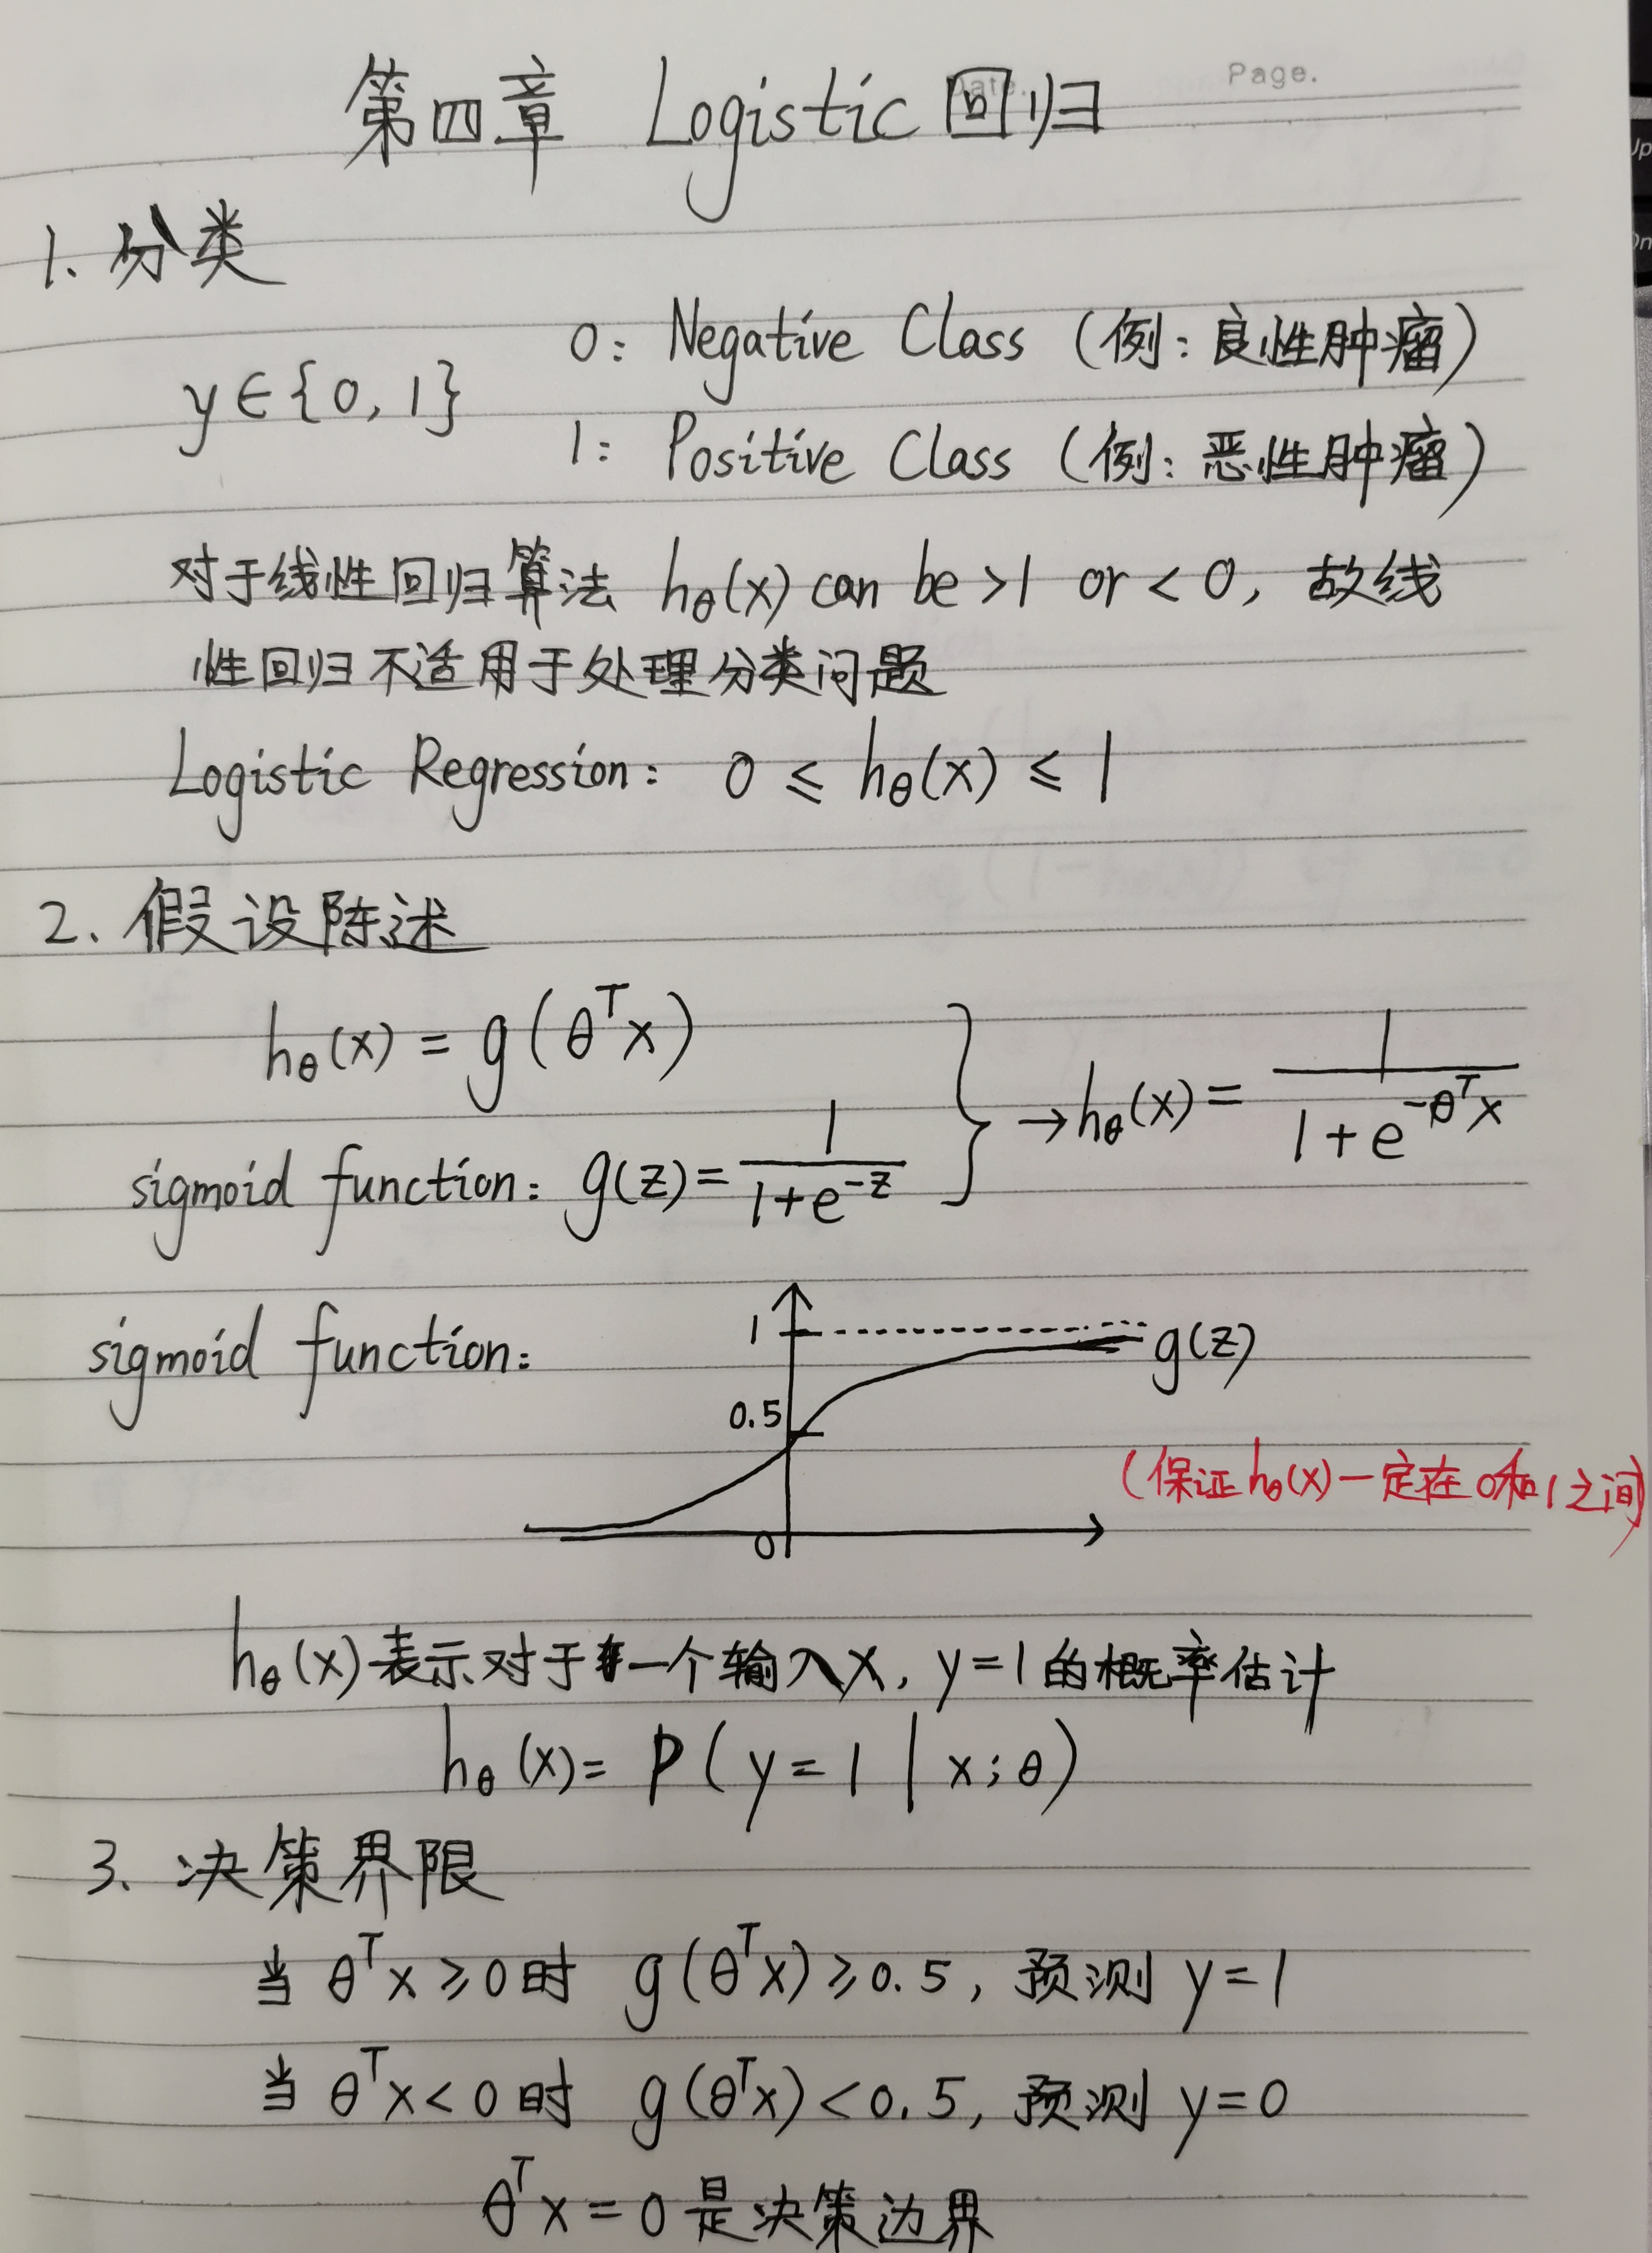 Date.
Page.
第四章 Logistic 回归
1. 分类
y∈{0, 1}
0: Negative Class (例: 良性肿瘤)
1: Positive Class (例: 恶性肿瘤)
对于线性回归算法 hθ(x) can be >1 or < 0, 故线
性回归不适用于处理分类问题
Logistic Regression: 0 ≤ hθ(x) ≤ 1
2. 假设陈述
hθ(x) = g(θᵀx)
sigmoid function: g(z) = 1/(1+e^-z) } → hθ(x) = 1/(1+e^-θᵀx)
sigmoid function:
1
g(z)
0.5
(保证hθ(x)一定在0和1之间)
0
hθ(x)表示对于一个输入x, y=1的概率估计
hθ(x) = P(y=1 | x;θ)
3. 决策界限
当 θᵀx ≥ 0 时 g(θᵀx) ≥ 0.5, 预测 y=1
当 θᵀx < 0 时 g(θᵀx) < 0.5, 预测 y=0
θᵀx = 0 是决策边界